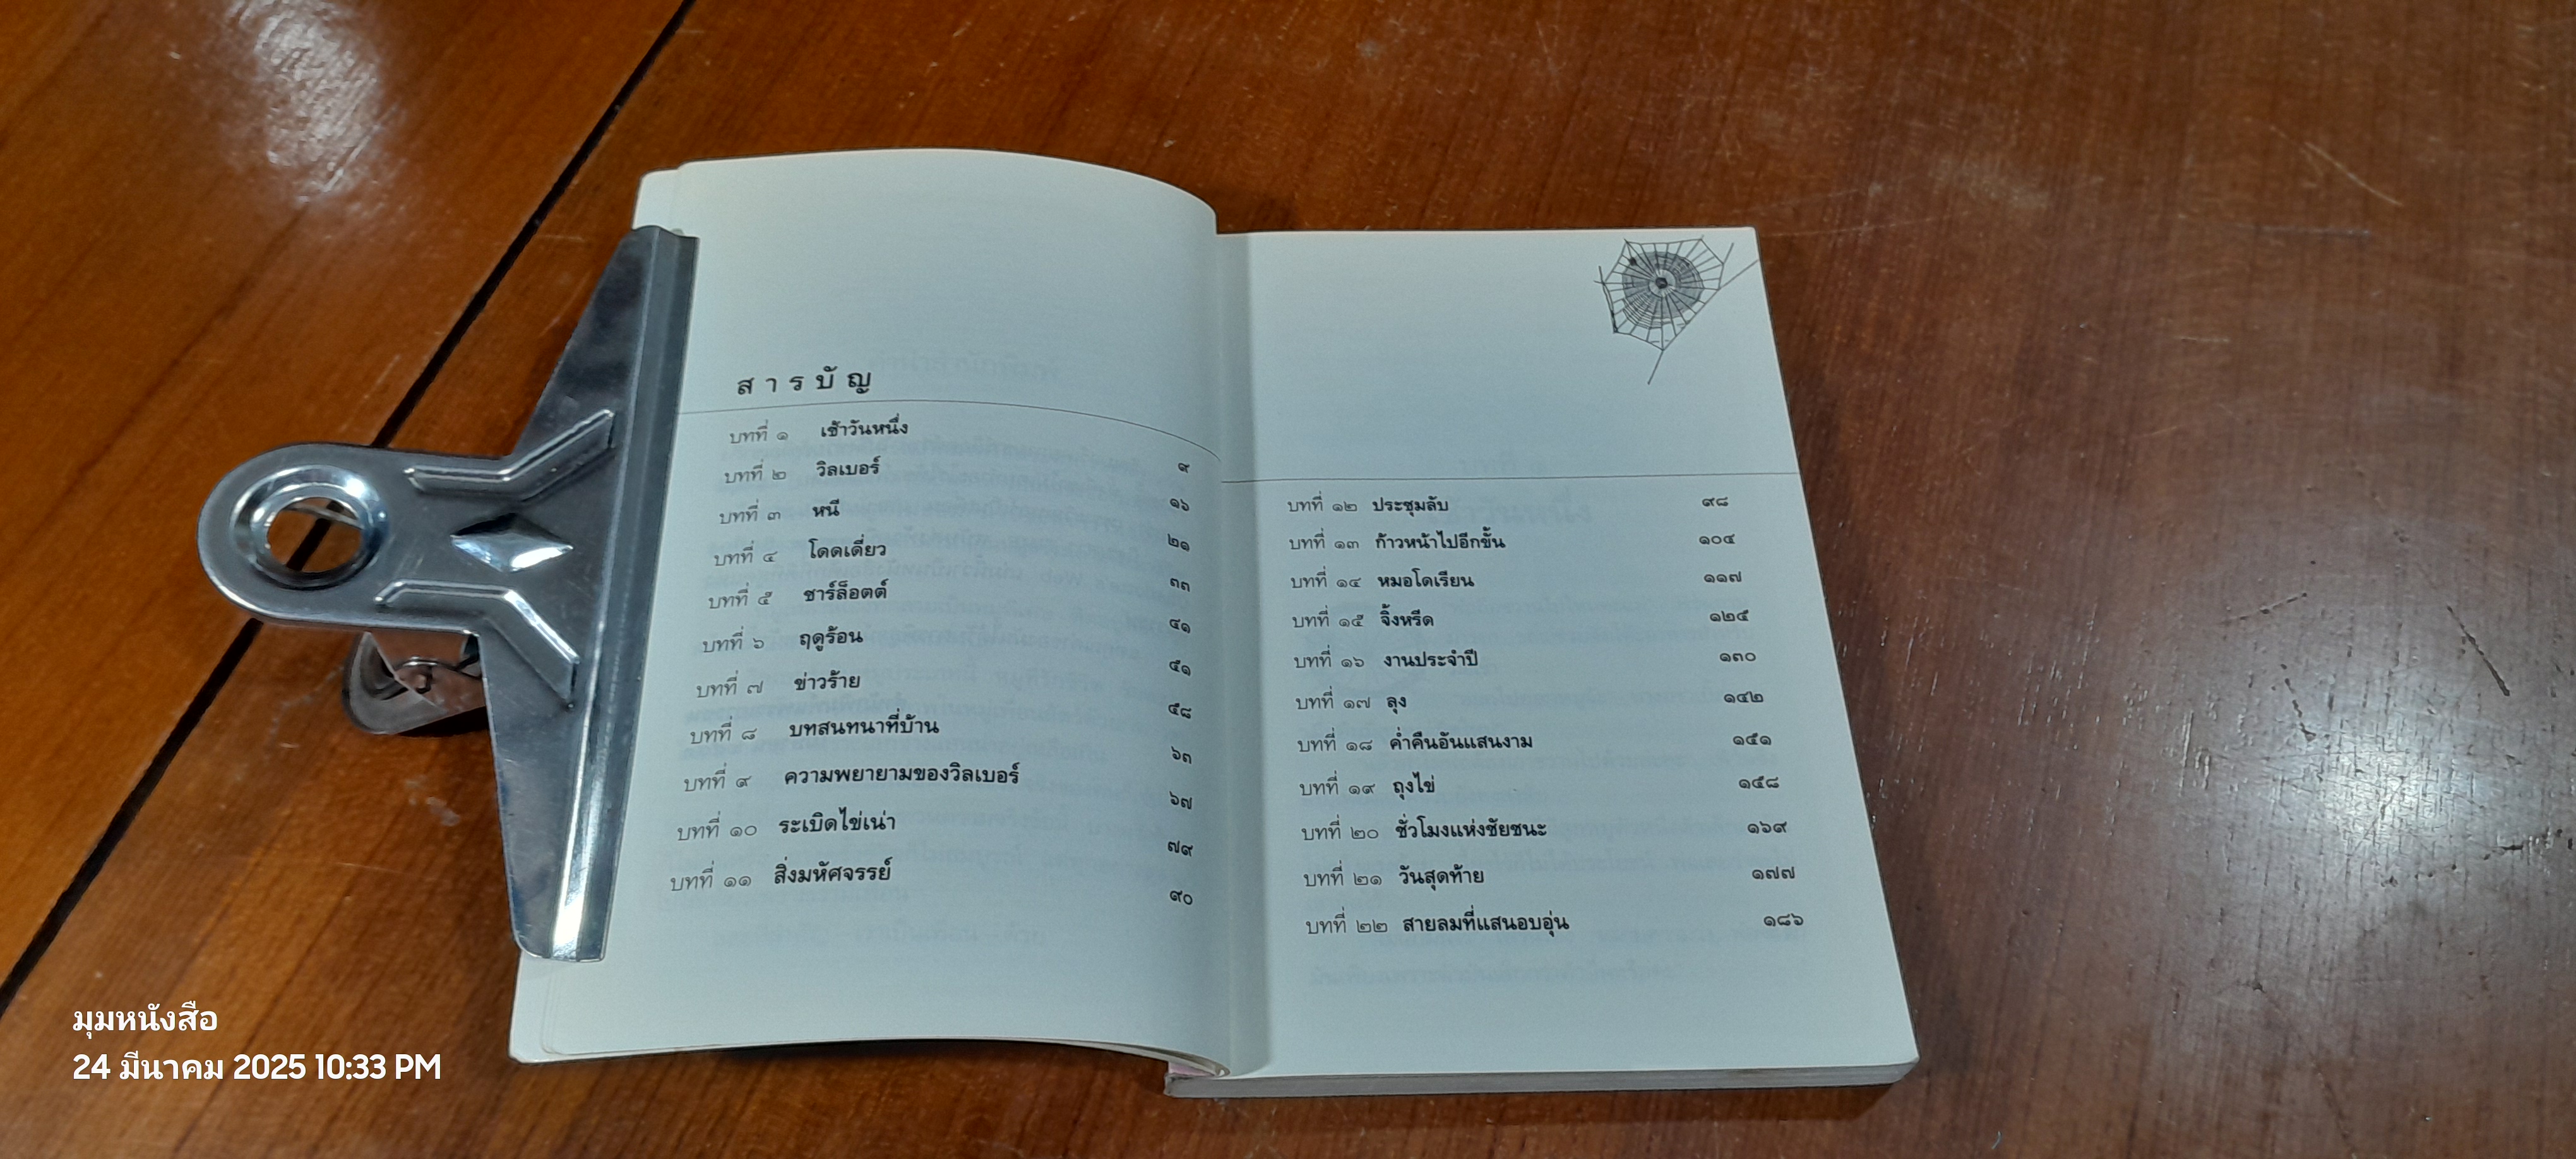 สารบัญ
บทที่ ๑ เช้าวันหนึ่ง ๙
บทที่ ๒ วิลเบอร์ ๑๖
บทที่ ๓ หนี ๒๑
บทที่ ๔ โดดเดี่ยว ๓๓
บทที่ ๕ ชาร์ล็อตต์ ๔๑
บทที่ ๖ ฤดูร้อน ๕๑
บทที่ ๗ ข่าวร้าย ๕๘
บทที่ ๘ บทสนทนาที่บ้าน ๖๓
บทที่ ๙ ความพยายามของวิลเบอร์ ๖๗
บทที่ ๑๐ ระเบิดไข่เน่า ๗๙
บทที่ ๑๑ สิ่งมหัศจรรย์ ๙๐
บทที่ ๑๒ ประชุมลับ ๙๘
บทที่ ๑๓ ก้าวหน้าไปอีกขั้น ๑๐๔
บทที่ ๑๔ หมอโดเรียน ๑๑๗
บทที่ ๑๕ จิ้งหรีด ๑๒๕
บทที่ ๑๖ งานประจำปี ๑๓๐
บทที่ ๑๗ ลุง ๑๔๒
บทที่ ๑๘ ค่ำคืนอันแสนงาม ๑๕๑
บทที่ ๑๙ ถุงไข่ ๑๕๘
บทที่ ๒๐ ชั่วโมงแห่งชัยชนะ ๑๖๙
บทที่ ๒๑ วันสุดท้าย ๑๗๗
บทที่ ๒๒ สายลมที่แสนอบอุ่น ๑๘๖
มุมหนังสือ
24 มีนาคม 2025 10:33 PM